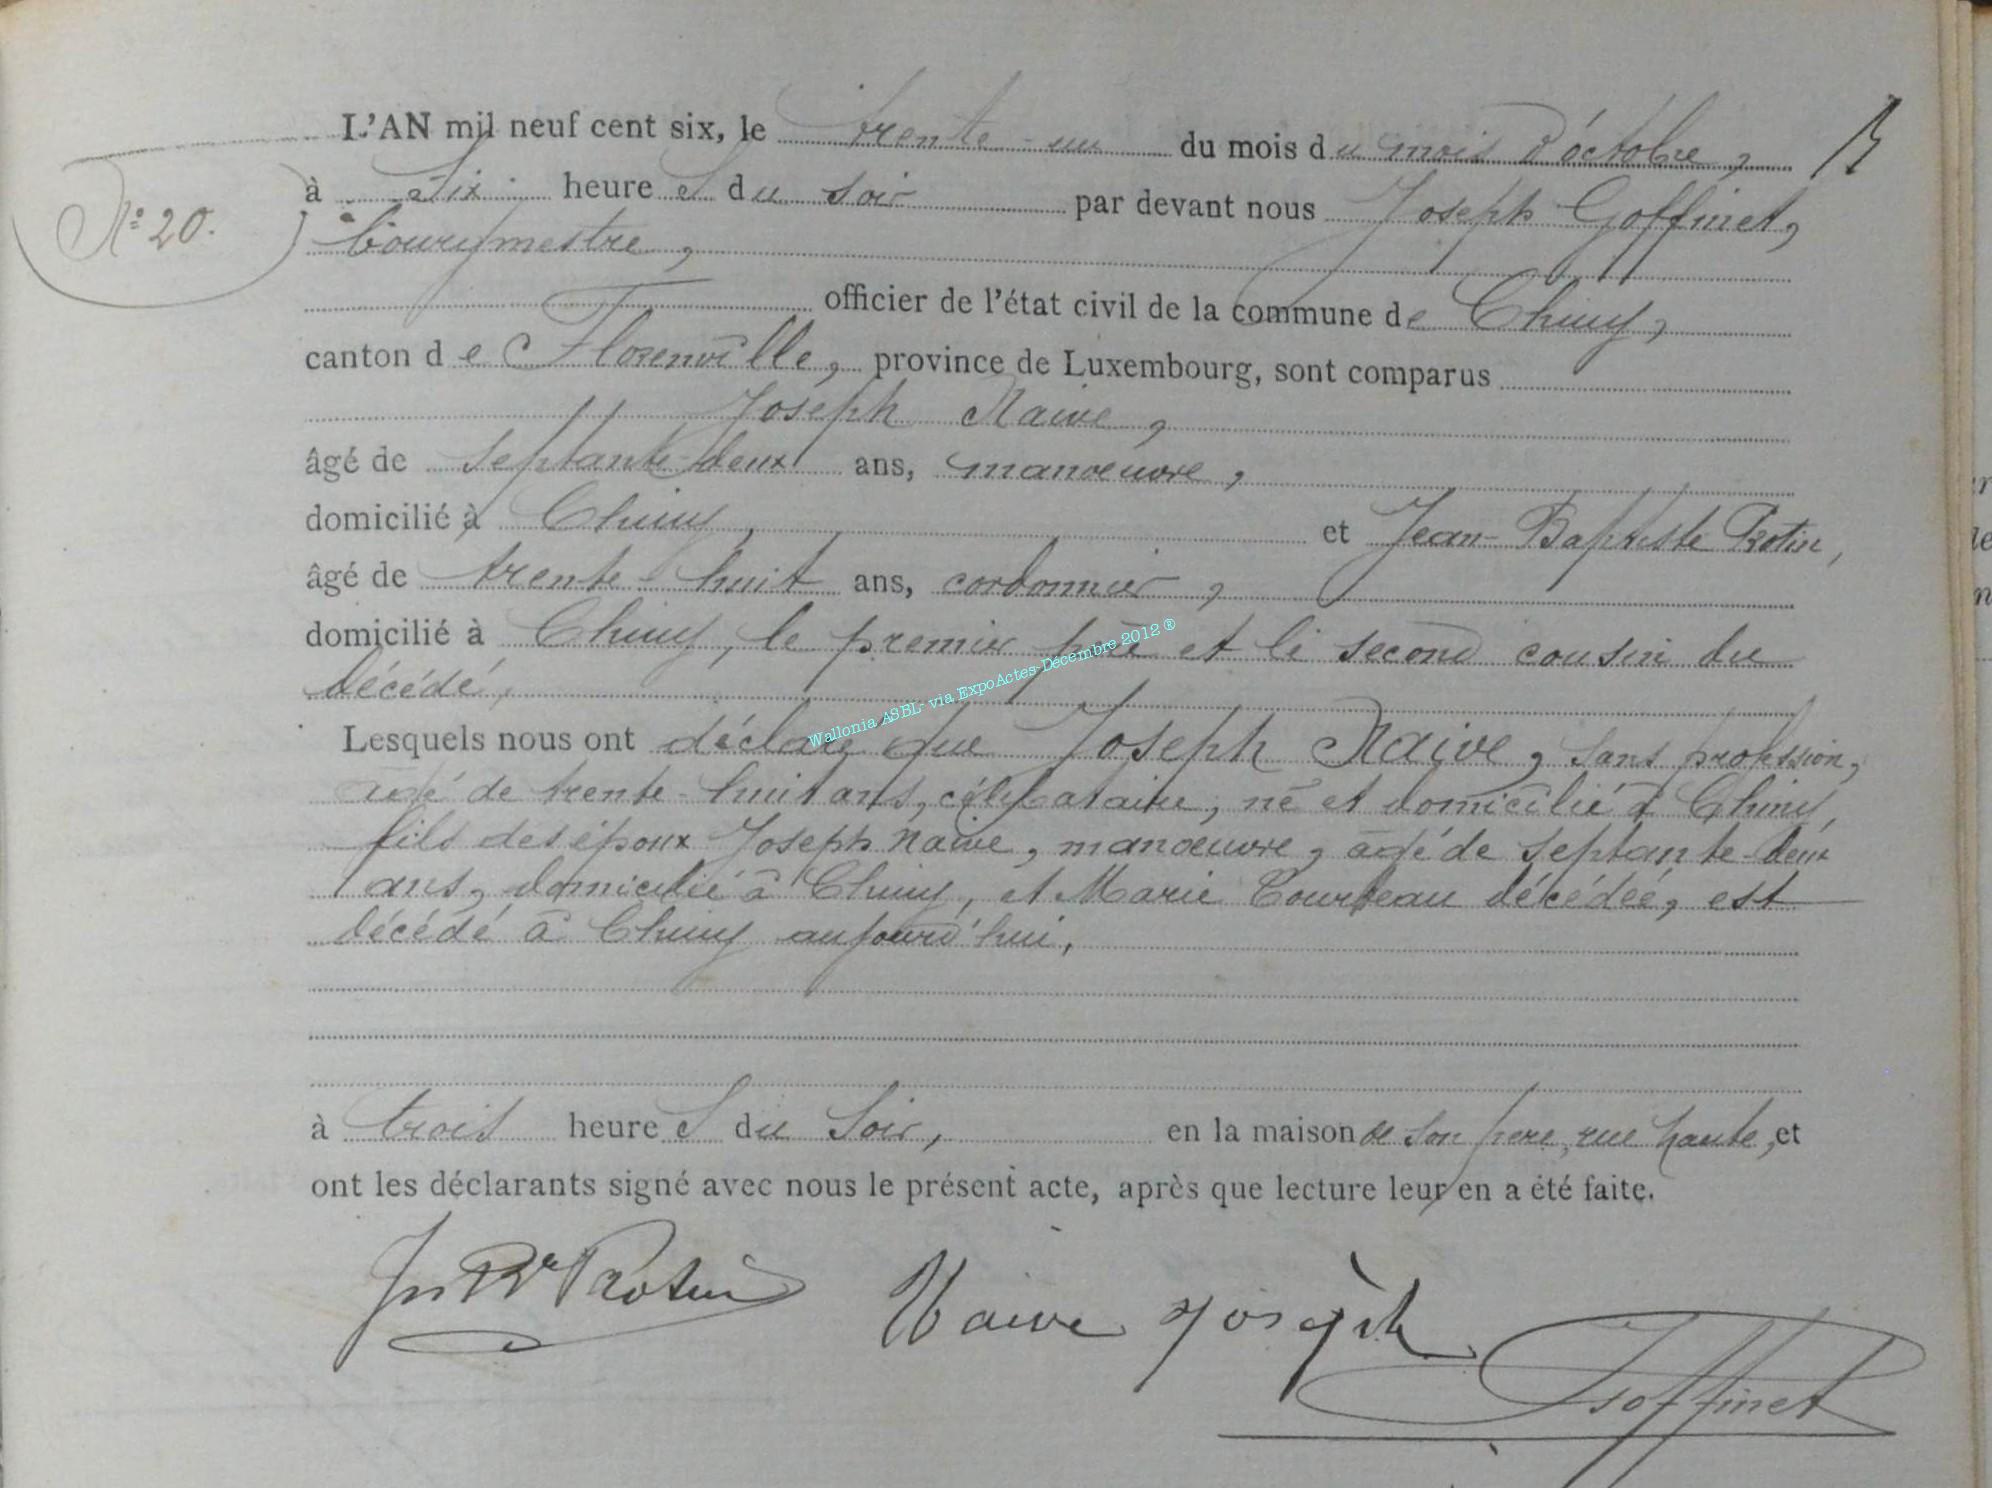 L'AN mil neuf cent six, le trente-un du mois du mois d'octobre,
N° 20.
à six heures du soir par devant nous Joseph Goffinet,
bourgmestre,
officier de l'état civil de la commune de Chiny,
canton de Florenville, province de Luxembourg, sont comparus
Joseph Naive,
âgé de septante-deux ans, manœuvre,
domicilié à Chiny, et Jean-Baptiste Protin,
âgé de trente-huit ans, cordonnier,
domicilié à Chiny, le premier père et le second cousin du
décédé,
Wallonia ASBL- via ExpoActes-Décembre 2012 ®
Lesquels nous ont déclaré que Joseph Naive, sans profession,
âgé de trente-huit ans, célibataire, né et domicilié à Chiny,
fils des époux Joseph Naive, manœuvre, âgé de septante-deux
ans, domicilié à Chiny, et Marie Tourbeau décédée, est
décédé à Chiny aujourd'hui,
à trois heures du soir, en la maison de son père, rue haute, et
ont les déclarants signé avec nous le présent acte, après que lecture leur en a été faite.
Jn Bte Protin Naive Joseph
Goffinet